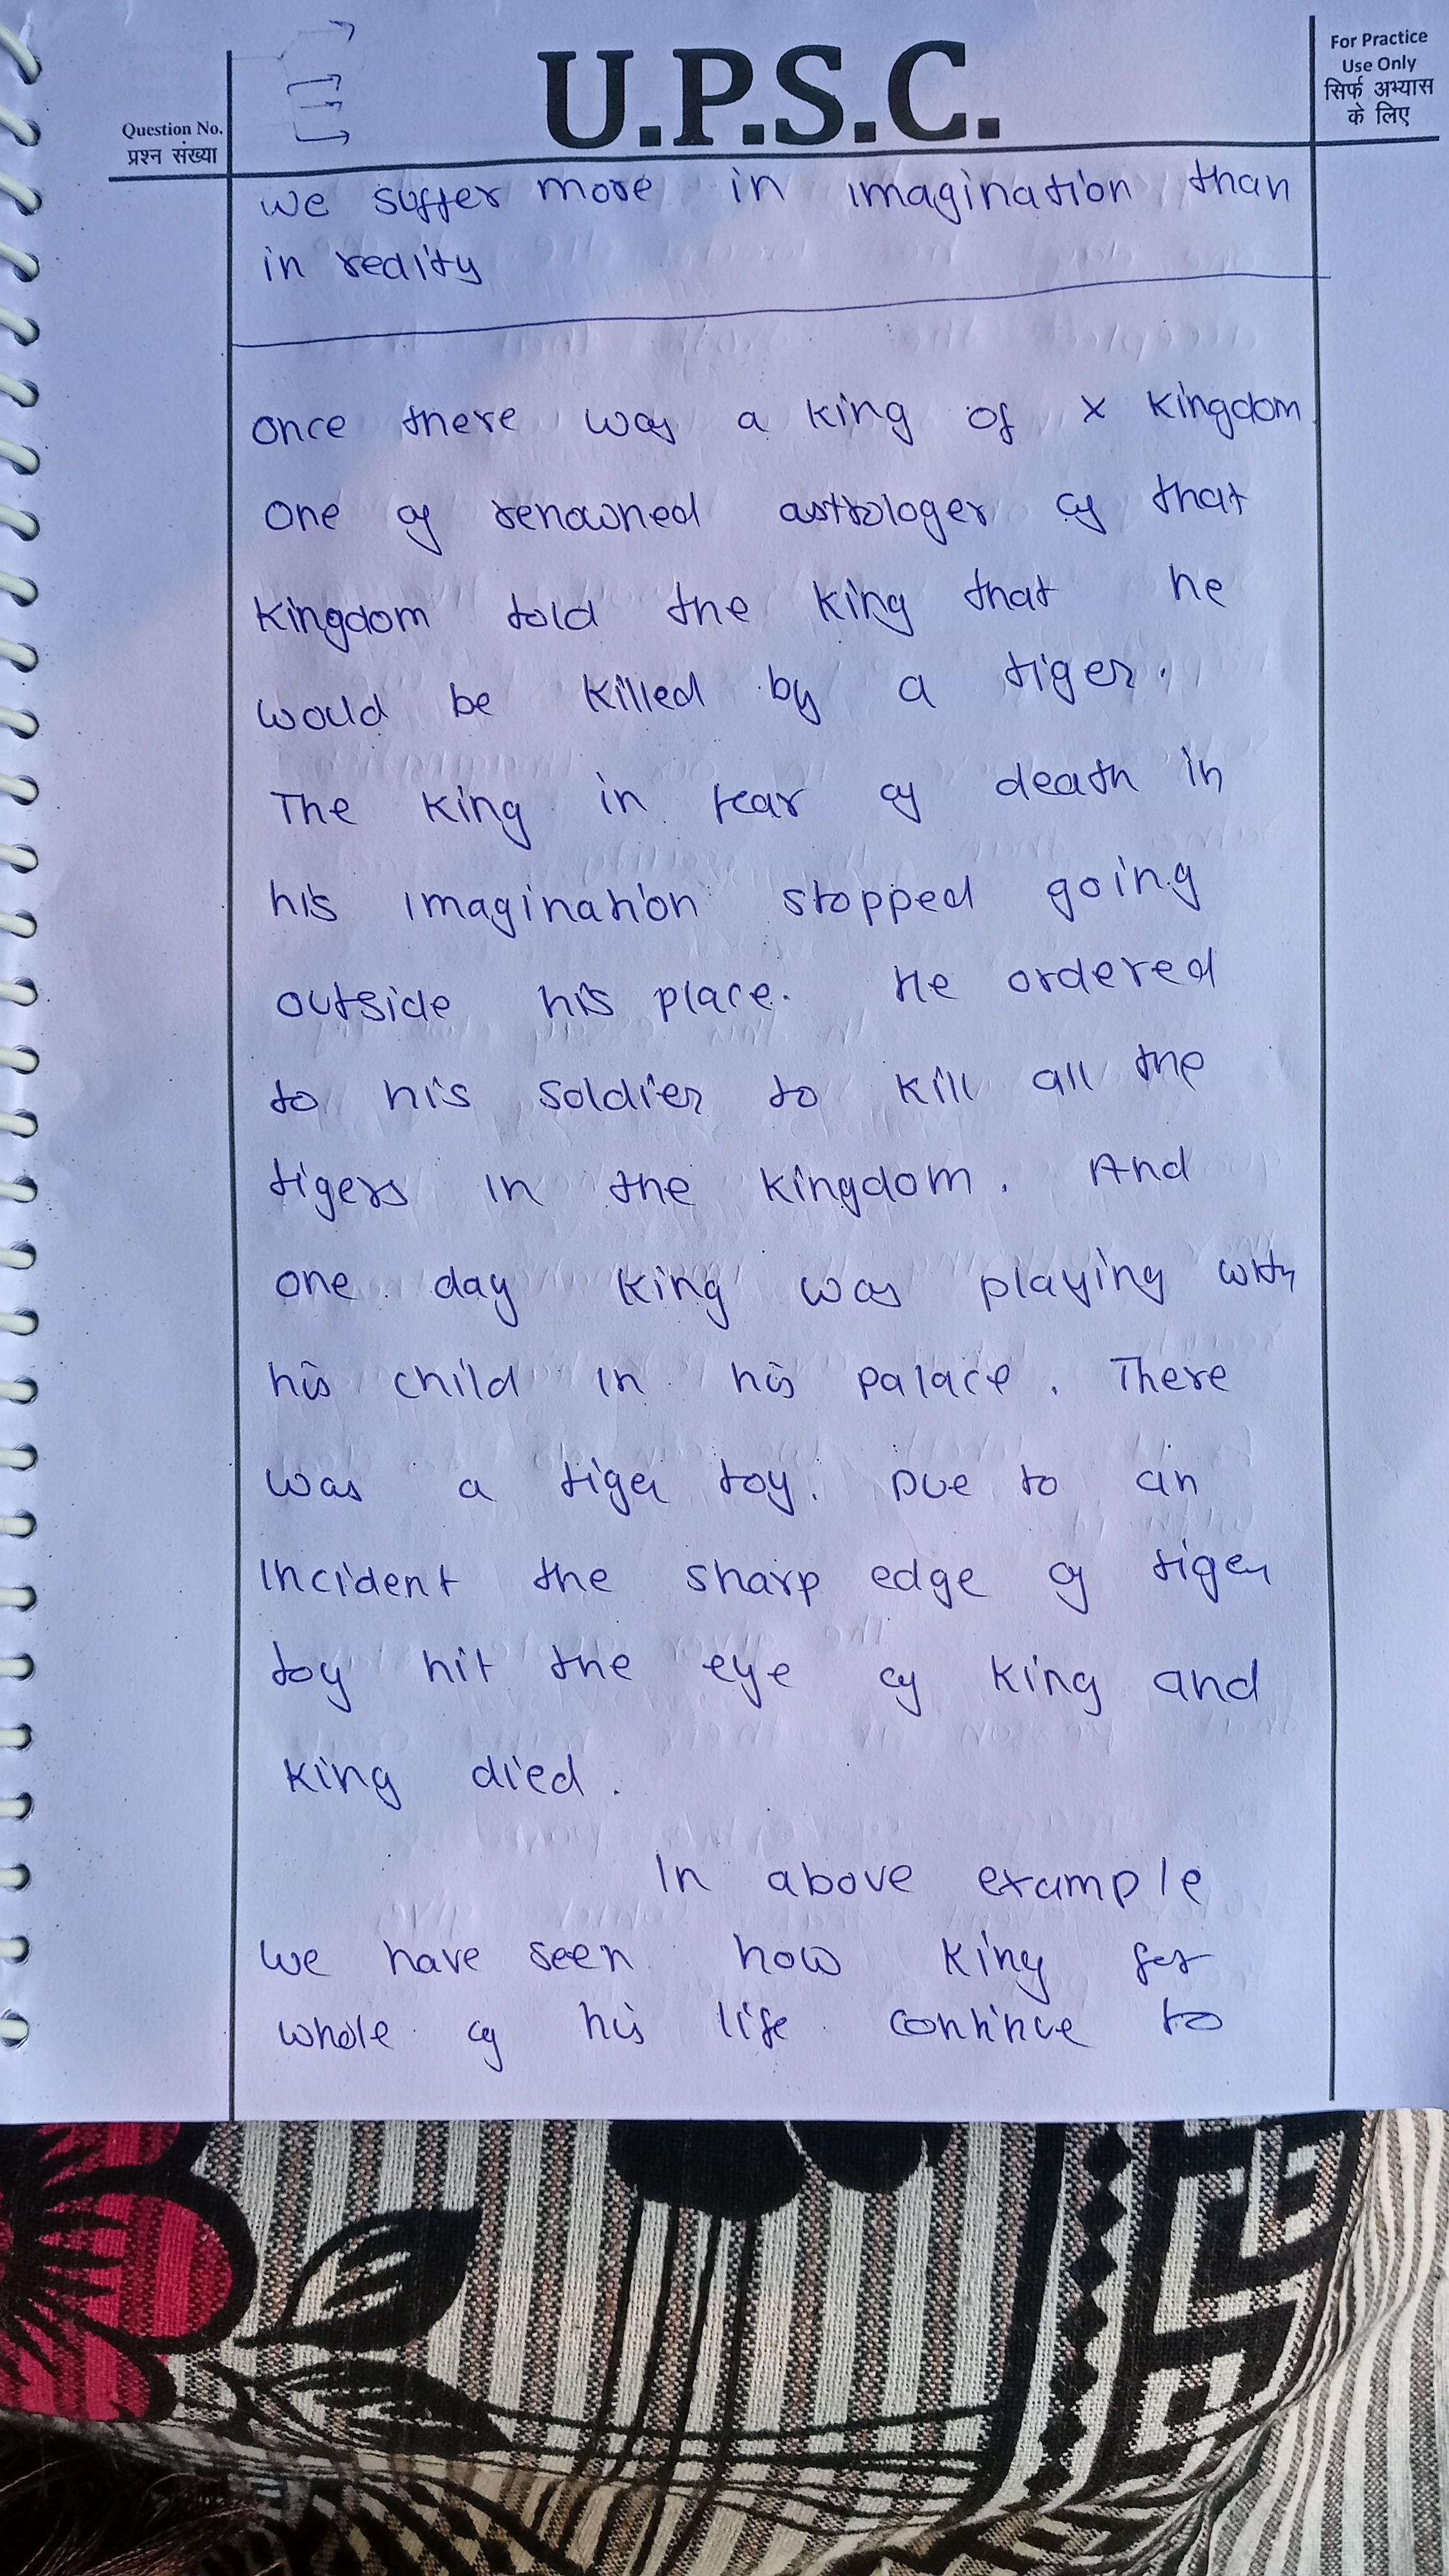 U.P.S.C.
For Practice
Use Only
सिर्फ अभ्यास
के लिए
Question No.
प्रश्न संख्या
We suffer more in imagination than
in reality
Once there was a king of X kingdom
One of renowned astrologer of that
kingdom told the king that he
would be killed by a tiger.
The king in fear of death in
his imagination stopped going
outside his place. He ordered
to his soldier to kill all the
tigers in the kingdom. And
one day king was playing with
his child in his palace. There
was a tiger toy. Due to an
incident the sharp edge of tiger
toy hit the eye of king and
king died.
In above example
we have seen how king for
whole of his life continue to